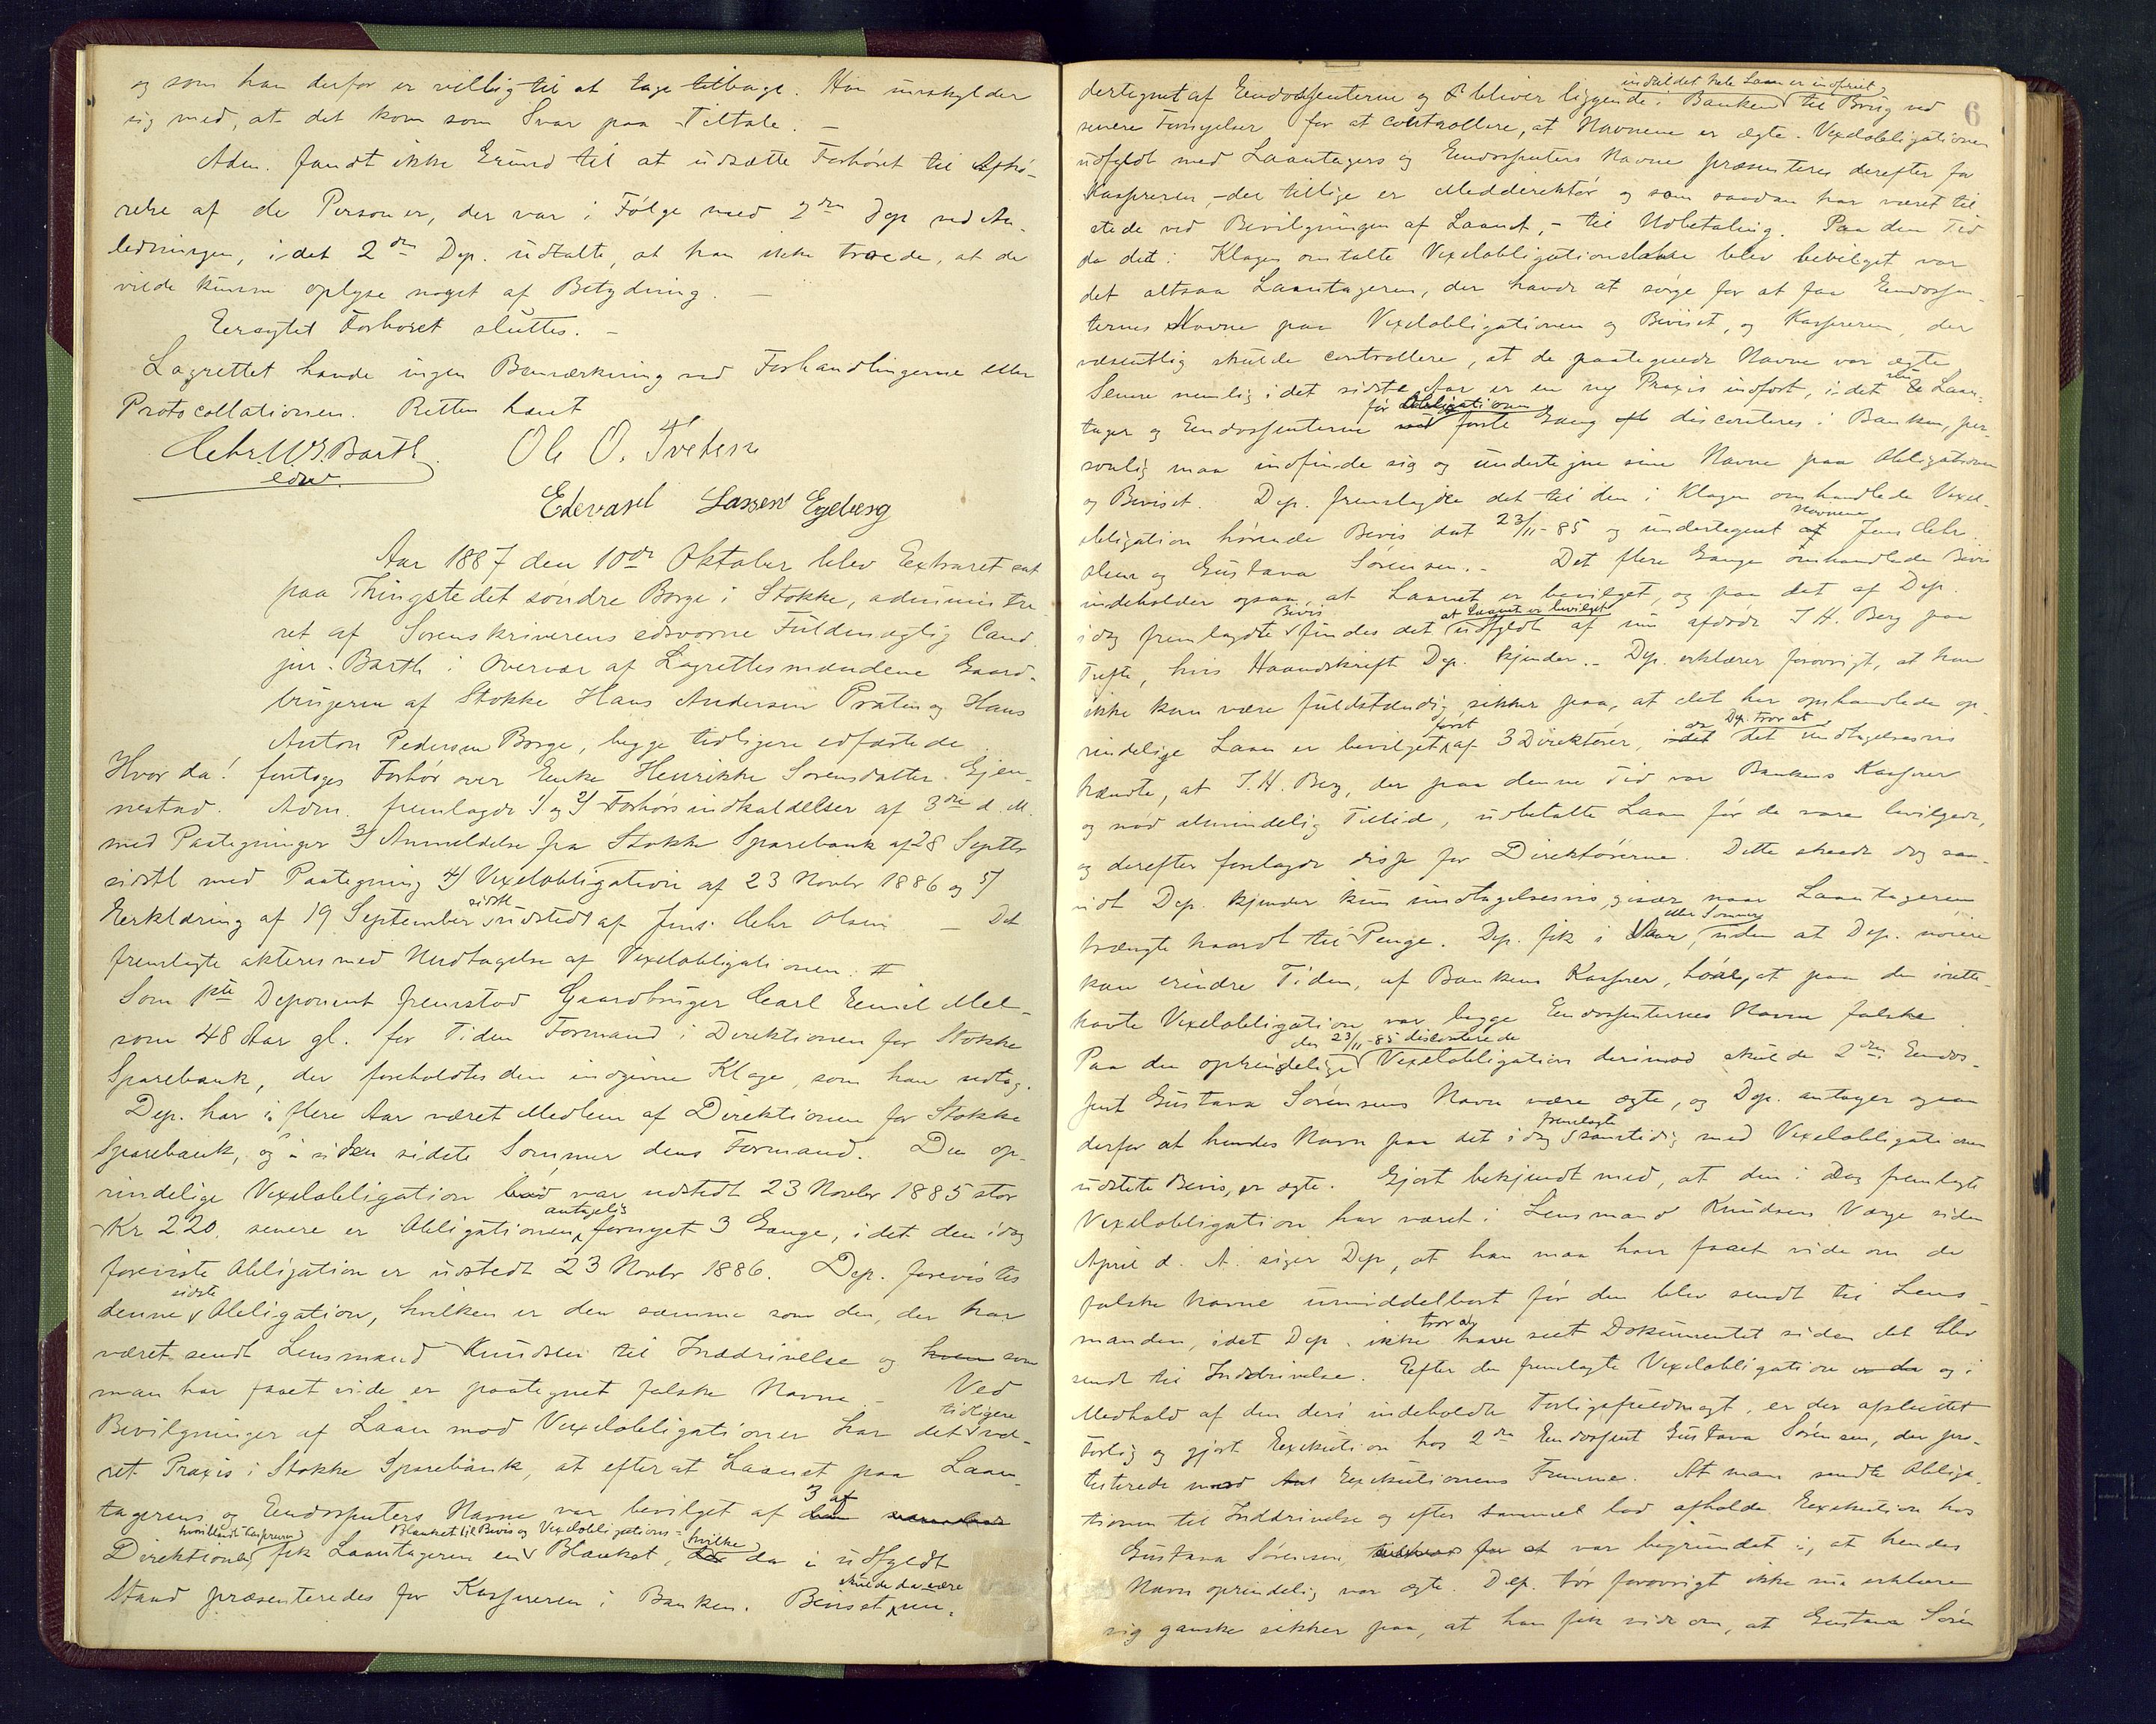 og som han derfor er villig til at tage tilbage. Hun undskylder
sig med, at det kom som Svar paa Tiltale. –
Adm. fandt ikke Grund til at udsætte Forhöret til Afhö-
relse af de Personer, der var i Fölge med 2den Dep ved An-
ledningen, idet 2den Dep. udtalte, at han ikke troede, at de
vilde kunne oplyse noget af Betydning. –
Eragtet Forhöret sluttes. –
Lagrettet havde ingen Bemærkning ved Forhandlingerne eller
Protocollationen. Retten hævet
Chr. W. S. Barth Ole O. Tvetene
edsv.
Edevard Larsen Egeberg
Aar 1887 den 10de Oktober blev Extraret sat
paa Thingstedet söndre Borge i Stokke, administre-
ret af Sorenskriverens edsvorne Fuldmægtig Cand.
jur. Barth i Overvær af Lagrettesmændene Gaard-
brugerne af Stokke Hans Andersen Præten og Hans
Anton Pedersen Borge, begge tidligere edfæstede.
Hvor da! foretoges Forhör over Enke Henrikke Sorensdatter Gjen-
nestad. Adm. fremlagde 1/ og 2/ Forhörsindkaldelser af 3die d. M.
med Paategninger 3/ Anmeldelse fra Stokke Sparebank af 28 Septbr
sidstl med Paategning 4/ Vexelobligation af 23 Novbr 1886 og 5/
Erklæring af 19 September sidstl udstedt af Jens Chr Olsen – Det
fremlagte akteres med Undtagelse af Vexelobligationen. #
Som 1ste Deponent fremstod Gaardbruger Carl Emil Mel-
som 48 Aar gl. for Tiden Formand i Direktionen for Stokke
Sparebank, der foreholdtes den indgivne Klage, som han vedtog.
Dep. har i flere Aar været Medlem af Direktionen for Stokke
Sparebank, og er siden sidste Sommer dens Formand. Den op-
rindelige Vexelobligation var udstedt 23 Novbr 1885 stor
Kr 220. senere er Obligationen antagelig fornyet 3 Gange, idet den idag
foreviste Obligation er udstedt 23 Novbr 1886. Dep. forevistes
denne sidste Obligation, hvilken er den samme som den, der har
været sendt Lensmand Knudsen til Inddrivelse og hvem som
man har faaet vide er paategnet falske Navne – Ved
Bevilgninger af Laan mod Vexelobligationer har det tidligere væ-
ret Praxis i Stokke Sparebank, at efter at Laanet paa Laan-
tagerens og Endossenters Navne var bevilget af 3 af
Direktionen, hvoriblandt Kassereren, fik Laantageren en Blanket til Bevis og Vexelobligations- Blanket, hvilke da i udfyldt
Stand præsenteredes for Kassereren i Banken. Beviset skulde da være un-
6
dertegnet af Endossenterne og bliver liggende i Banken indtil det hele Laan er indfriet til Brug ved
senere Fornyelser for at controllere, at Navnene er ægte. Vexelobligationen
udfyldt med Laantagers og Endossenters Navne præsenteres derefter for
Kassereren, – der tillige er Meddirektör og som saadan har været til
stede ved Bevilgningen af Laanet, – til Udbetaling. Paa den Tid
da det i Klagen omtalte Vexelobligationslaan blev bevilget var
det altsaa Laantageren, der havde at sörge for at faa Endossen-
ternes Navne paa Vexelobligationen og Beviset, og Kassereren, der
væsentlig skulde controllere, at de paategnede Navne var ægte
Senere nemlig i det sidste Aar er en ny Praxis indfört, idet nu Laan-
tager og Endossenterne för Obligationen förste Gang disconteres i Banken, per-
sonlig maa indfinde sig og undertegne sine Navne paa Obligationen
og Beviset. Dep. fremlagde det til den i Klagen omhandlede Vexel-
obligation hörende Bevis dat 23/11-85 og undertegnet Navnene af Jens Chr.
Olsen og Gustava Sörensen. – Det flere Gange omhandlede Bevis
indeholder ogsaa, at Laanet er bevilget, og paa det af Dep.
idag fremlagte Bevis findes det udfyldt at Laanet er bevilget af nu afdöde I. H. Berg paa
Tufte, hvis Haandskrift Dep. kjender. – Dep. erklærer forövrigt, at han
ikke kan være fuldstændig sikker paa, at det her omhandlede op-
rindelige Laan er bevilget först af 3 Direktörer, idet da Dep. tror at det undtagelsesvis
hændte, at I. H. Berg, der paa denne Tid var Bankens Kasserer
og nöd almindelig Tillid, udbetalte Laan för de vare bevilgede,
og derefter forelagde disse for Direktörerne. Dette skeede dog saa-
vidt Dep. kjender kun undtagelsesvis, især naar Laantageren
trængte haardt til Penge. Dep. fik i Vaar eller Sommer, uden at Dep. nöiere
kan erindre Tiden, af Bankens Kasserer, höre, at paa den irette-
havte Vexelobligation var begge Endossenternes Navne falske.
Paa den oprindelige den 23/11-85 discontere de Vexelobligation derimod skulde 2den Endos-
sent Gustava Sörensens Navn være ægte, og Dep. antager ogsaa
derfor at hendes Navn paa det idag fremlagte samtidig med Vexelobligationen
udstedte Bevis, er ægte. Gjort bekjendt med, at den i Dag fremlagte
Vexelobligation har været i Lensmand Knudsens Værge siden
April d. A. siger Dep, at han maa have faaet vide om de
falske Navne umiddelbart för den blev sendt til Lens-
manden, idet Dep. ikke tror at have seet Dokumentet siden det blev
sendt til Inddrivelse. Efter den fremlagte Vexelobligation og i
Medhold af den deri indeholdte Forligsfuldmagt, er der afsluttet
Forlig og gjort Exekution hos 2den Endossent Gustava Sörensen, der pro-
testerede mod Exekutionens Fremme. At man sendte Obliga-
tionen til Inddrivelse og efter Sammet lod afholde Exekution hos
Gustava Sörensen, var begrundet i, at hendes
Navn oprindelig var ægte. Dep. tör forövrigt ikke nu erklære
sig ganske sikker paa, at han fik vide om, at Gustava Sören